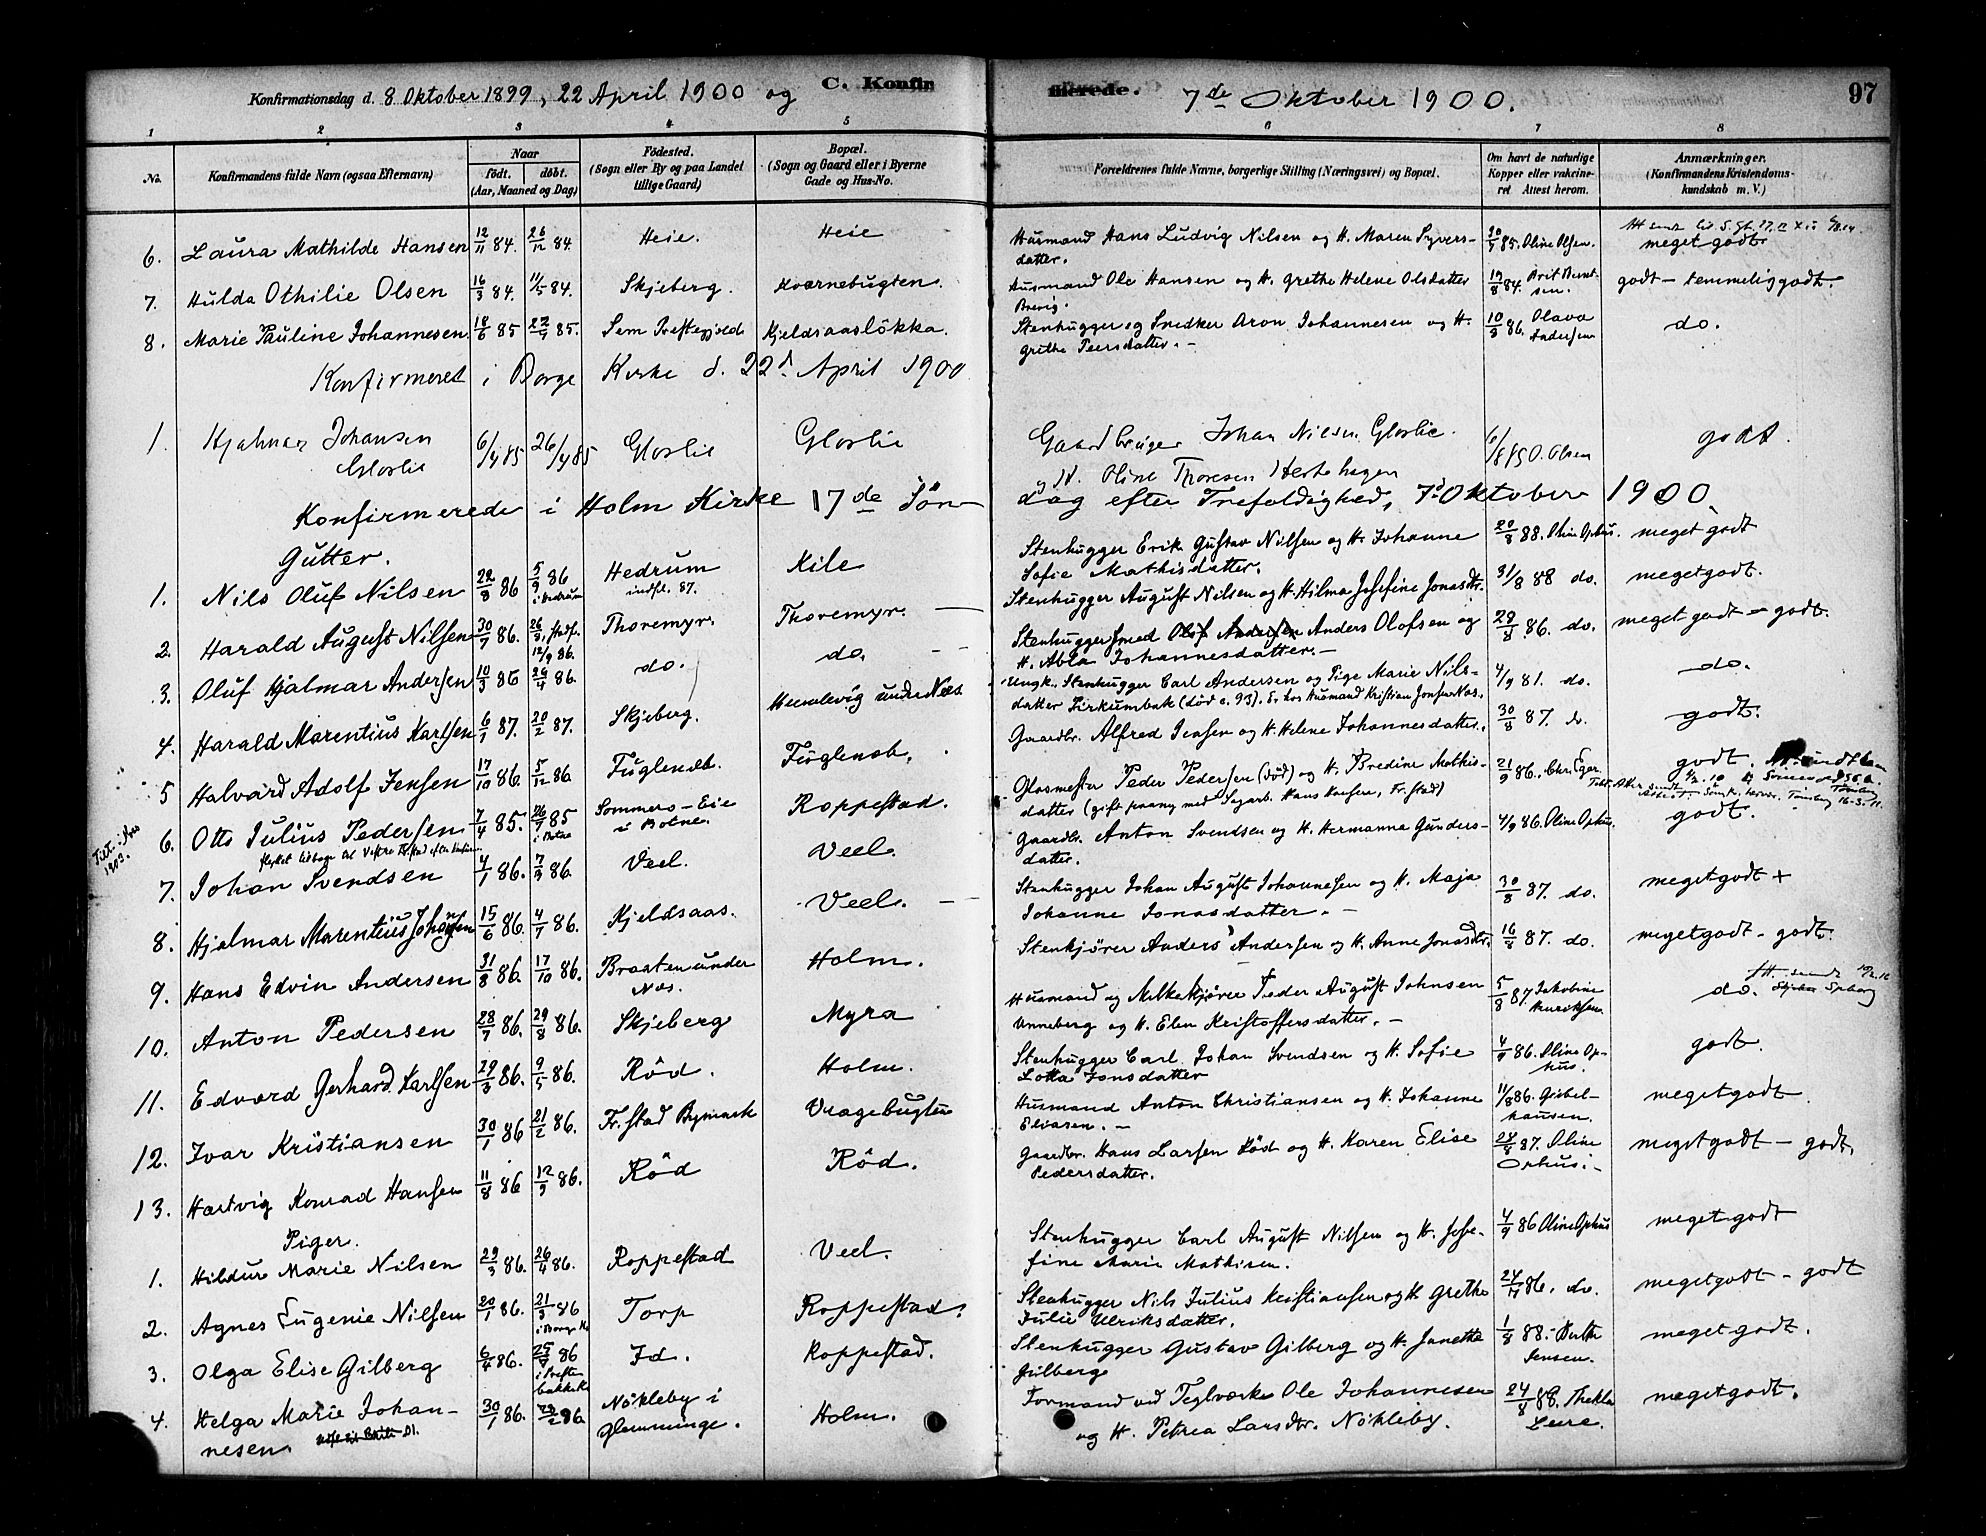 Konfirmationsdag d. 8 Oktober 1899, 22 April 1900 og C. Konfirmerede. 7de Oktober 1900. 97
1 2 3 4 5 6 7 8
No. Konfirmandens fulde Navn (ogsaa Efternavn) Naar født. døbt. (Aar, Maaned og Dag) Fødested. (Sogn eller By og paa Landet tillige Gaard) Bopæl. (Sogn og Gaard eller i Byerne Gade og Hus-No. Forældrenes fulde Navne, borgerlige Stilling (Næringsvei) og Bopæl. Om havt de naturlige Kopper eller vakcineret Attest herom. Anmærkninger. (Konfirmandens Kristendomskundskab m. V.)
6. Laura Mathilde Hansen 12/11 84. 26/12 84 Heie. Heie Husmand Hans Ludvig Nilsen og H. Maren Syversdatter. 85. Oline Olsen. meget godt
7. Hulda Othilie Olsen 16/3 84. 11/5 84. Skjeberg. Kværnebugten. Husmand Ole Hansen og H. Grethe Helene Olsdatter Brevig. 84. Brit Berntsen. godt - temmelig godt.
8. Marie Pauline Johannesen 18/6 85 85. Sem Prestegjeld Kjeldsaasløkka. Stenhugger og Snedker Aron Johannesen og H. Grethe Peersdatter. - 86. Olava Andersen do.
Konfirmeret i Borge Kirke d. 22d April 1900
1. Hjalmar Johansen Gloslie 6/4 85 26/4 85 Gloslie Gloslie Gaardbruger Johan Nilsen Gloslie og H. Oline Thoresen Hertehagen O. Olsen godt
Konfirmerede i Holm Kirke 17de Søndag efter Trefoldighed, 7d Oktober 1900
Gutter.
1. Nils Oluf Nilsen 86 5/9 86 i Hedrum Hedrum indfl. 87. Kile Stenhugger Erik Gustav Nilsen og H. Johanne Sofie Mathisdatter. 20/8 88. Oline Ophus. meget godt
2. Harald August Nilsen 30/7 86. 12/9 86. Thoremyr. Thoremyr. Stenhugger August Nilsen og H. Hilma Josefine Jonasdtr. 31/8 88 do. meget godt.
3. Oluf Hjalmar Andersen 10/3 86 86. do. do. Stenhugger Smed Anders Olofsen og H. Abla Johannesdatter. - 86. do. meget godt - godt.
4. Harald Marentius Karlsen 6/1 87. 20/2 87. Skjeberg. under Næs Ungk. Stenhugger Carl Andersen og Pige Marie Nilsdatter (død c. 93). Er hos Husmand Kristian Jonsen Næs. 4/9 81. do. do.
5 Halvard Adolf Jensen 17/10 86. 5/12 86 Fuglenæb. Fuglenæb. Gaardbr. Alfred Jensen og H. Helene Johannesdatter. 30/8 87. do. godt.
6. Otto Julius Pedersen 7/4 85. 85 i Botne Sommers-Eie i Botne. Roppestad. Glasmester Peder Pedersen (død) og H. Bredine Mathisdatter (gift paany med Fr.stad) 21/9 86. Chr. godt.
7. Johan Svendsen 4/1 86. 7/3 86. Veel. Veel. Gaardbr. Anton Svendsen og H. Hermanna Gundersdatter. 4/9 86. Oline Ophus. godt.
8. Hjalmar Marentius Johansen 15/6 86. 4/7 86. Kjeldsaas. Veel. Stenhugger Johan August Johannesen og H. Maja Johanne Jonasdatter. - 30/8 87. do. meget godt +
9. Hans Edvin Andersen 31/8 86. 17/10 86. Braaten under Næs. Holm. Stenkjører Anders Andersen og H. Anne Jonasdtr. 16/8 87. do. meget godt - godt.
10. Anton Pedersen 28/7 86. 29/8 86. Skjeberg Myra Husmand og Melkekjører Peder August Johnsen Unneberg og H. Elen Kristoffersdatter. - 5/8 87. Jakobine Henriksen do.
11. Edvard Gerhard Karlsen 29/3 86. 9/5 86. Rød. Holm. Stenhugger Carl Johan Svendsen og H. Sofie Lotta Jonsdatter 4/9 86. Oline Ophus. godt.
12. Ivar Kristiansen 30/1 86 21/2 86. Fr.stad Bymark Vragebugten Husmand Anton Christiansen og H. Johanne Elvasen. - 11/8 86. Gibelhausen. meget godt
13. Hartvig Konrad Hansen 11/8 86 12/9 86. Rød Rød. Gaardbr. Hans Larsen Rød og H. Karen Elise Pedersdatter. 87. Oline Ophus. - meget godt - godt.
Piger.
1. Hildur Marie Nilsen 29/3 86. 26/4 86. Roppestad Veel. Stenhugger Carl August Nilsen og H. Josefine Marie Mathisen. 4/9 86 Oline Ophus meget godt
2. Agnes Eugenie Nilsen 20/1 86. 21/3 86 i Borge K. Torp Roppestad. Stenhugger Nils Julius Kristiansen og H. Grethe Julie Ulriksdatter. 86. do. meget godt - godt
3. Olga Elise Gilberg 6/4 86. 86 i Prestebakke K. Id. Roppestad. Stenhugger Gustav Gilberg og H. Janette Gilberg 1/8 88. Berthe Jensen. meget godt.
4. Helga Marie Johannesen 30/1 86. 86. Nøkleby i Glemminge. Holm. Formand ved Teglværk Ole Johannesen og H. Petrea Larsdtr. Nøkleby. 24/8 88. Thekla Leere. meget godt.